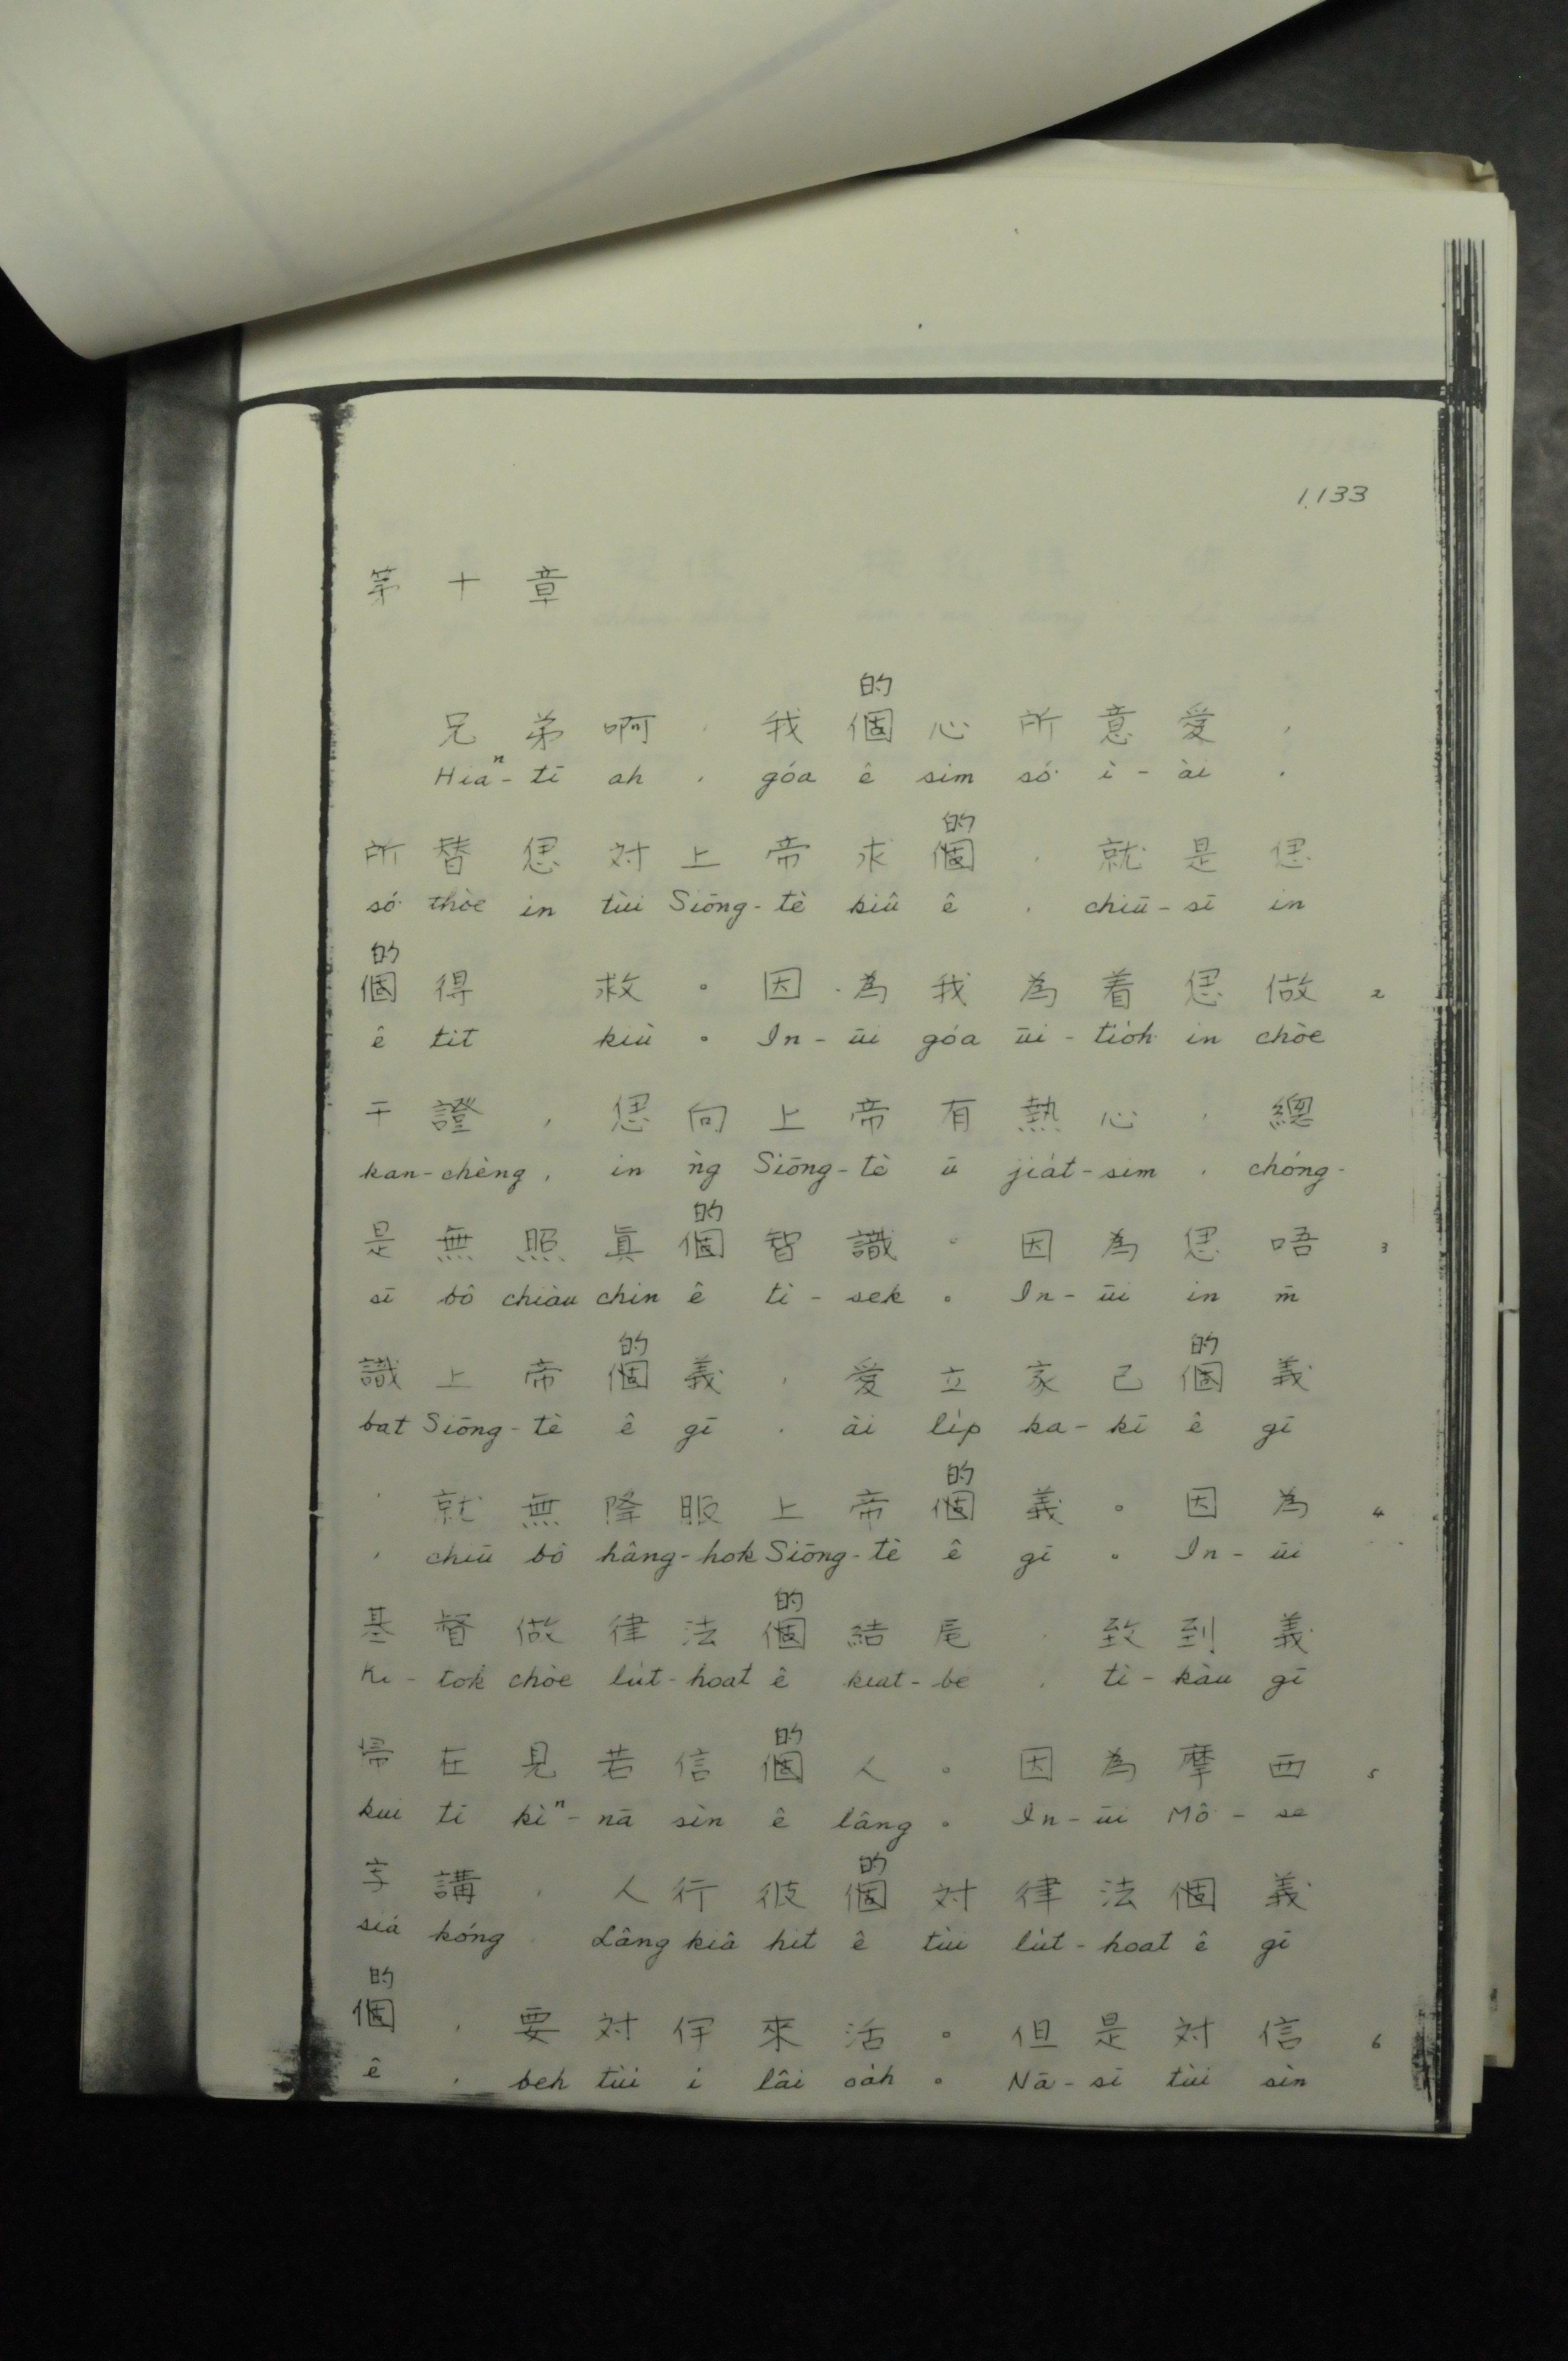 1133
第十章
的
兄弟啊，我個心所意愛，
Hiaⁿ-tī ah, góa ê sim só͘ ì-ài,
的
所替𪜶対上帝求個，就是𪜶
só͘ thòe in tùi Siōng-tè kiû ê, chiū-sī in
的
個得 救。因為我為着𪜶做 2
ê tit kiù。In-ūi góa ūi-tio̍h in chòe
干證，𪜶向上帝有熱心，總
kan-chèng, in ǹg Siōng-tè ū jia̍t-sim, chóng-
的
是無照真個智識。因為𪜶唔 3
sī bô chiàu chin ê tì-sek。In-ūi in m̄
的 的
識上帝個義，愛立家己個義
bat Siōng-tè ê gī, ài li̍p ka-kī ê gī
的
，就無降服上帝個義。因為 4
, chiū bô hâng-hok Siōng-tè ê gī。In-ūi
的
基督做律法個結尾，致到義
Ki-tok chòe lu̍t-hoat ê kiat-bé, tì-kàu gī
的
帰在見若信個人。因為摩西 5
kui tī kìⁿ-nā sìn ê lâng。In-ūi Mô͘-se
的
写講，人行彼個対律法個義
siá kóng, Lâng kiâ hit ê tùi lu̍t-hoat ê gī
的
個，要対伊來活。但是対信 6
ê, beh tùi i lâi oa̍h。Nā-sī tùi sìn